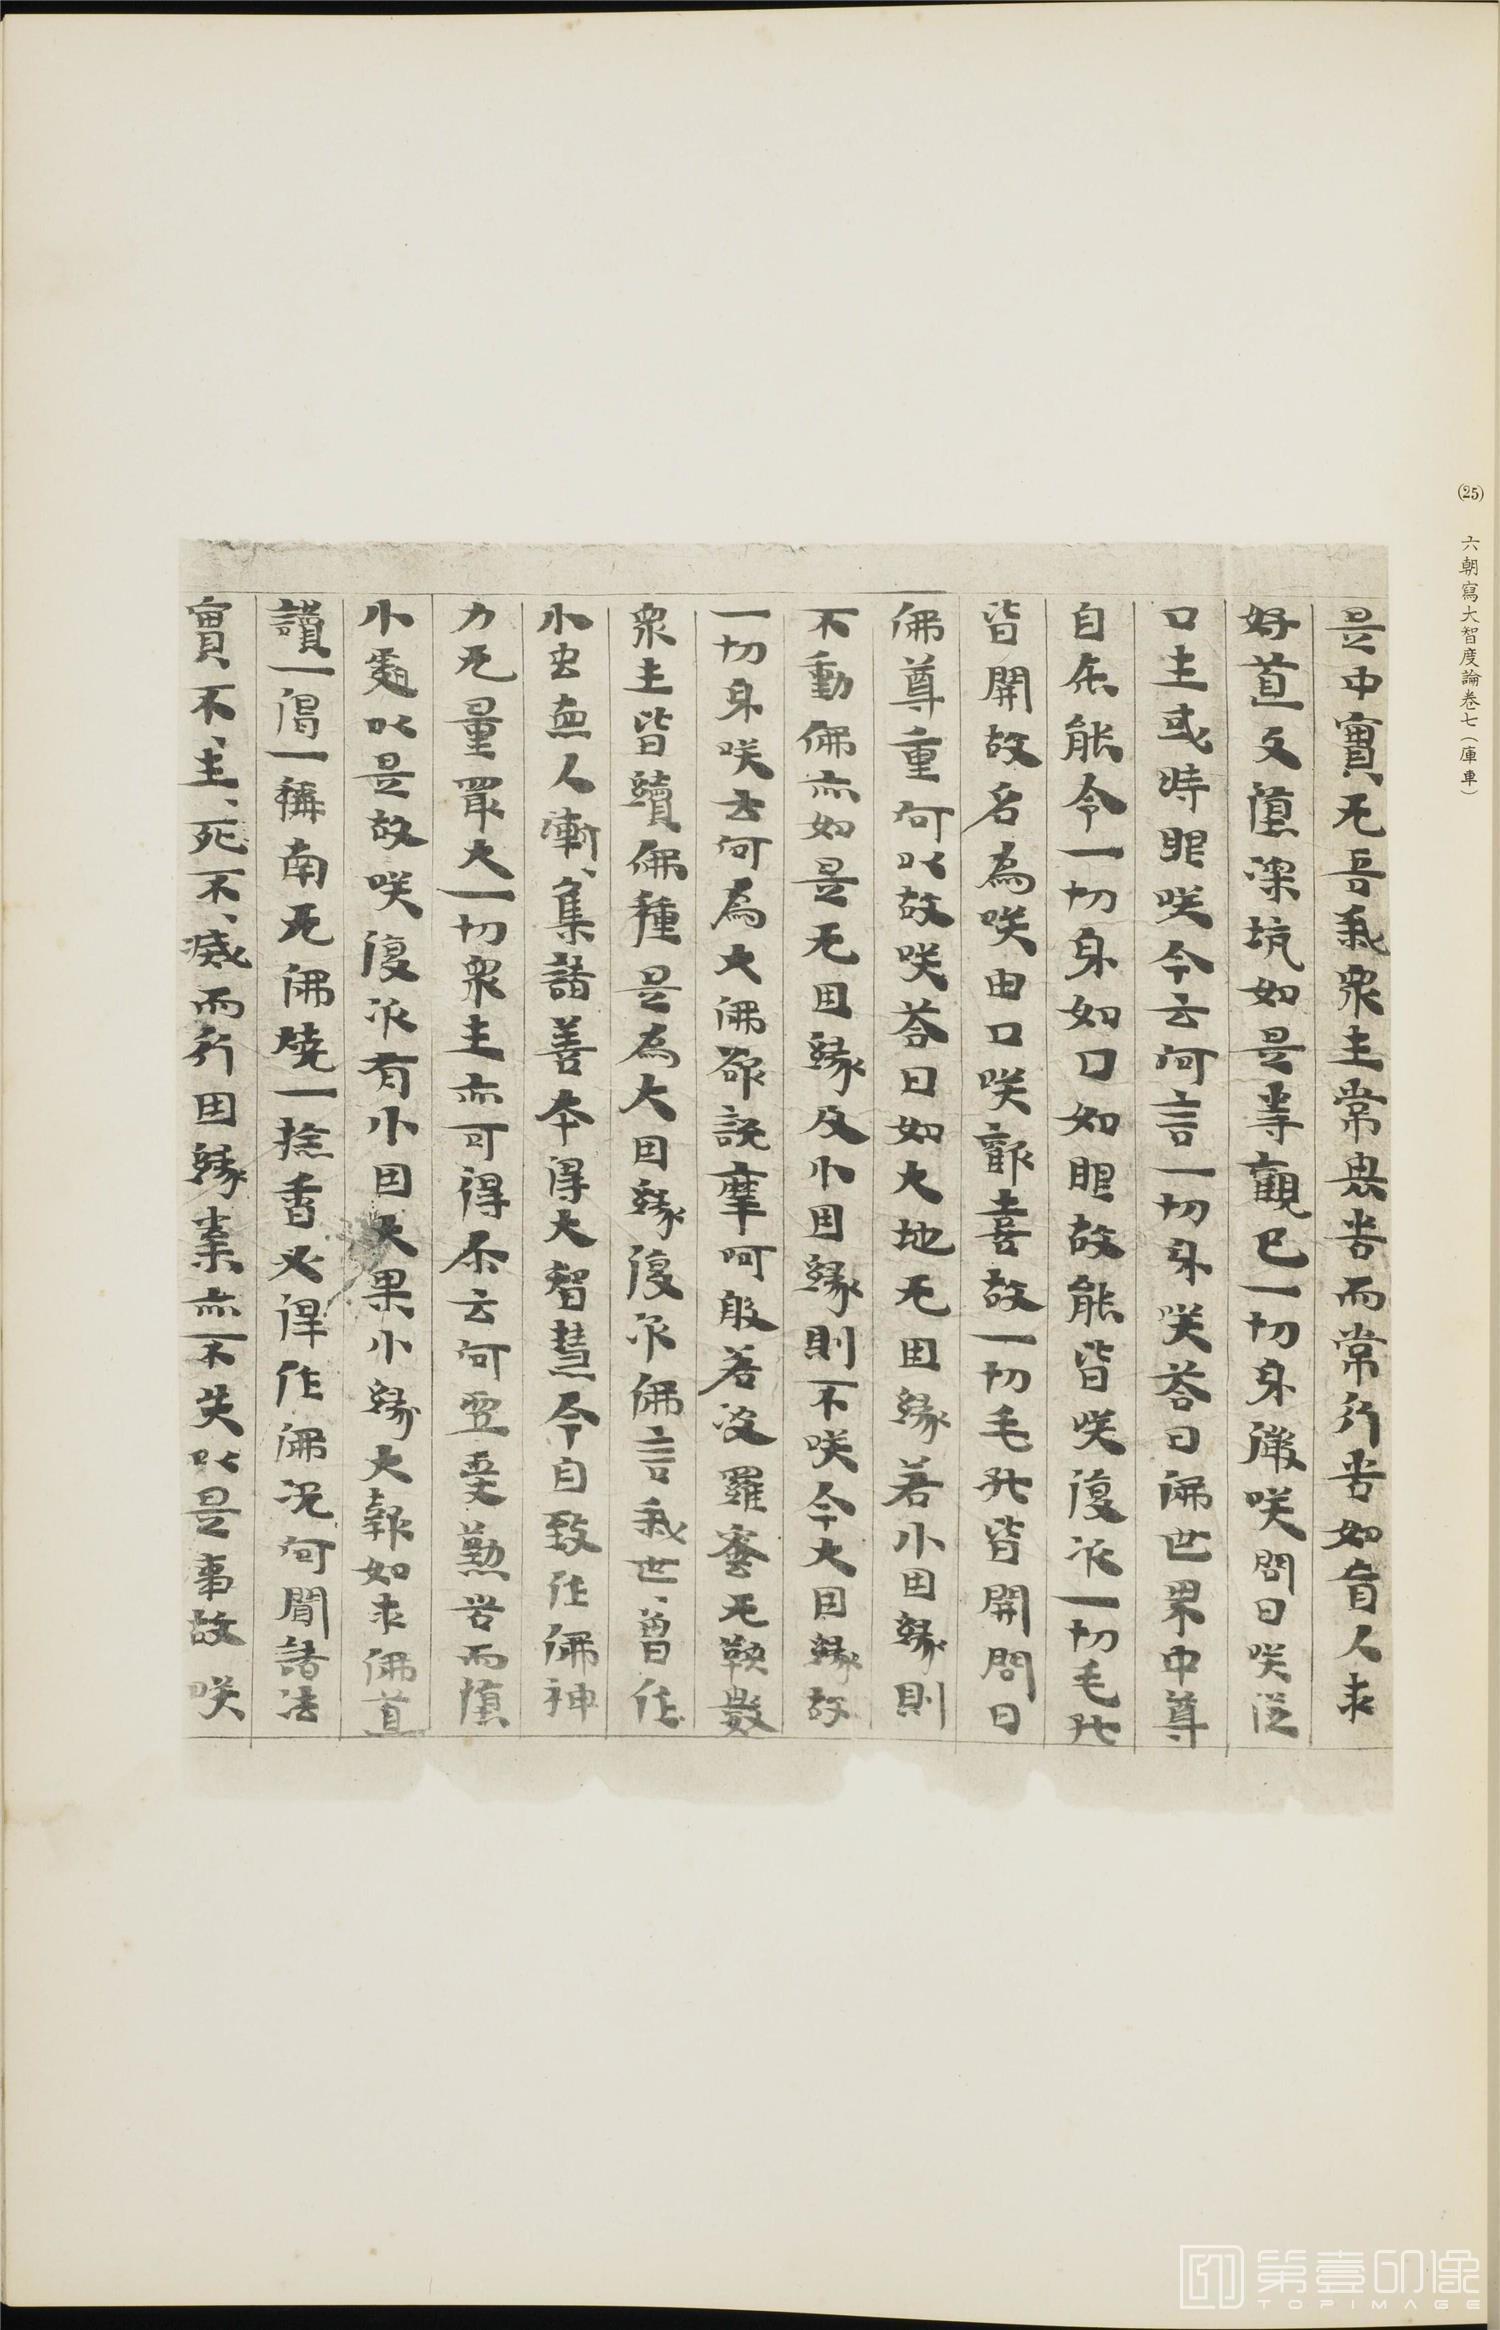 (25) 六朝寫大智度論卷七（庫車）
是中實无吾我衆生常畏苦而常行苦如盲人求
好道又墮深坑如是等觀已一切身微咲問曰咲從
口生或時眼咲今云何言一切身咲荅曰佛世界中尊
自在能令一切身如口如眼故能皆咲復次一切毛孔
皆開故名為咲由口咲歡喜故一切毛孔皆開問曰
佛尊重何以故咲荅曰如大地无因緣若小因緣則
不動佛亦如是无因緣及小因緣則不咲今大因緣故
一切身咲云何為大佛欲說摩呵般若波羅蜜无鞅數
衆生皆續佛種是為大因緣復次佛言我世、曾作
小虫惡人漸、集諸善本得大智慧今自致作佛神
力无量最大一切衆生亦可得尒云何空受懃苦而墮
小處以是故咲復次有小因大果小緣大報如求佛道
讚一偈一稱南无佛燒一捻香必得作佛况何聞諸法
實不、生、死不、滅而行因緣業亦不失以是事故咲
第壹印像
TOPIMAGE